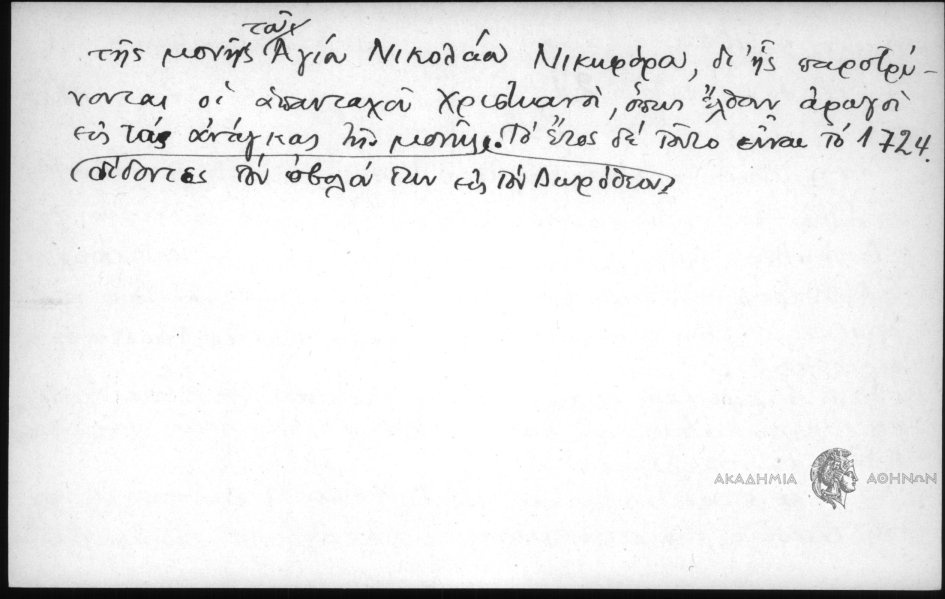 τοῦ
τῆς μονῆς Ἁγίου Νικολάου Νικηφόρου, δι' ἧς παροτρύ-
νονται οἱ ἁπανταχοῦ Χριστιανοί, ὅπως ἔλθουν ἀρωγοὶ
εἰς τὰς ἀνάγκας τῆς μονῆς. Τὸ ἔτος δὲ τοῦτο εἶναι τὸ 1724.
δίδοντες τὸν ὀβολόν των εἰς τὸν Δωρόθεον
ΑΚΑΔΗΜΙΑ ΑΘΗΝΩΝ